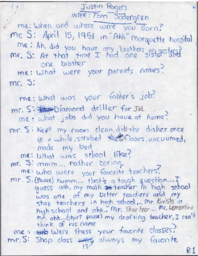 Justin Rogers
Mr. S: Tom Soderghen
me: When and where were you born?
Mr. S: April 15, 1951 in the Marquette hospital
me: Ah, did you have any brothers or sisters?
Mr. S: At that time I had one sister and
one brother
me: What were your parents names?
Mr. S:
me: What was your father's job?
Mr. S: Diamond driller for
me: What jobs did you have at home?
Mr. S: Keep my room clean, did the dishes once
in a while, scrubed the floors, vacuumed,
made my bed
me: What was school like?
Mr. S: mmm... rather boring
me: Who were your favorite teachers?
Mr. S: (Pause) humm... that's a tough question... I
guess ahh, my math teacher in high school
was one of my better teachers and my
shop teachers in high school,, Mr.
high school and ahh.. Mr.
mr. ahh... (short pause) my drafting teacher, I can't
think of his name
me: Were these your favorite classes?
Mr. S: Shop class is always my favorite